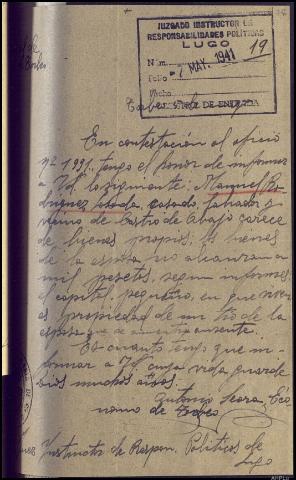 JUZGADO INSTRUCTOR DE
RESPONSABILIDADES POLÍTICAS
LUGO
Núm. 19
Folio 7 MAY. 1941
Fecha
DE ENTRADA
En contestación al oficio
nº 1991, tengo el honor de informar
a Vd. lo siguiente: Manuel Ro-
driguez casado, labrador y
vecino de Castro de Abajo carece
de bienes propios; los bienes
de la esposa no alcanzan a
mil pesetas, segun informes
el capital, pequeño, en que viven
es propiedad de un tio de la
esposa que se encuentra ausente.
Es cuanto tengo que in-
formar a Vd. cuya vida guarde
Dios muchos años.
Antonio Seara, Ecó-
nomo de
Instructor de Respon. Politicas de
Lugo